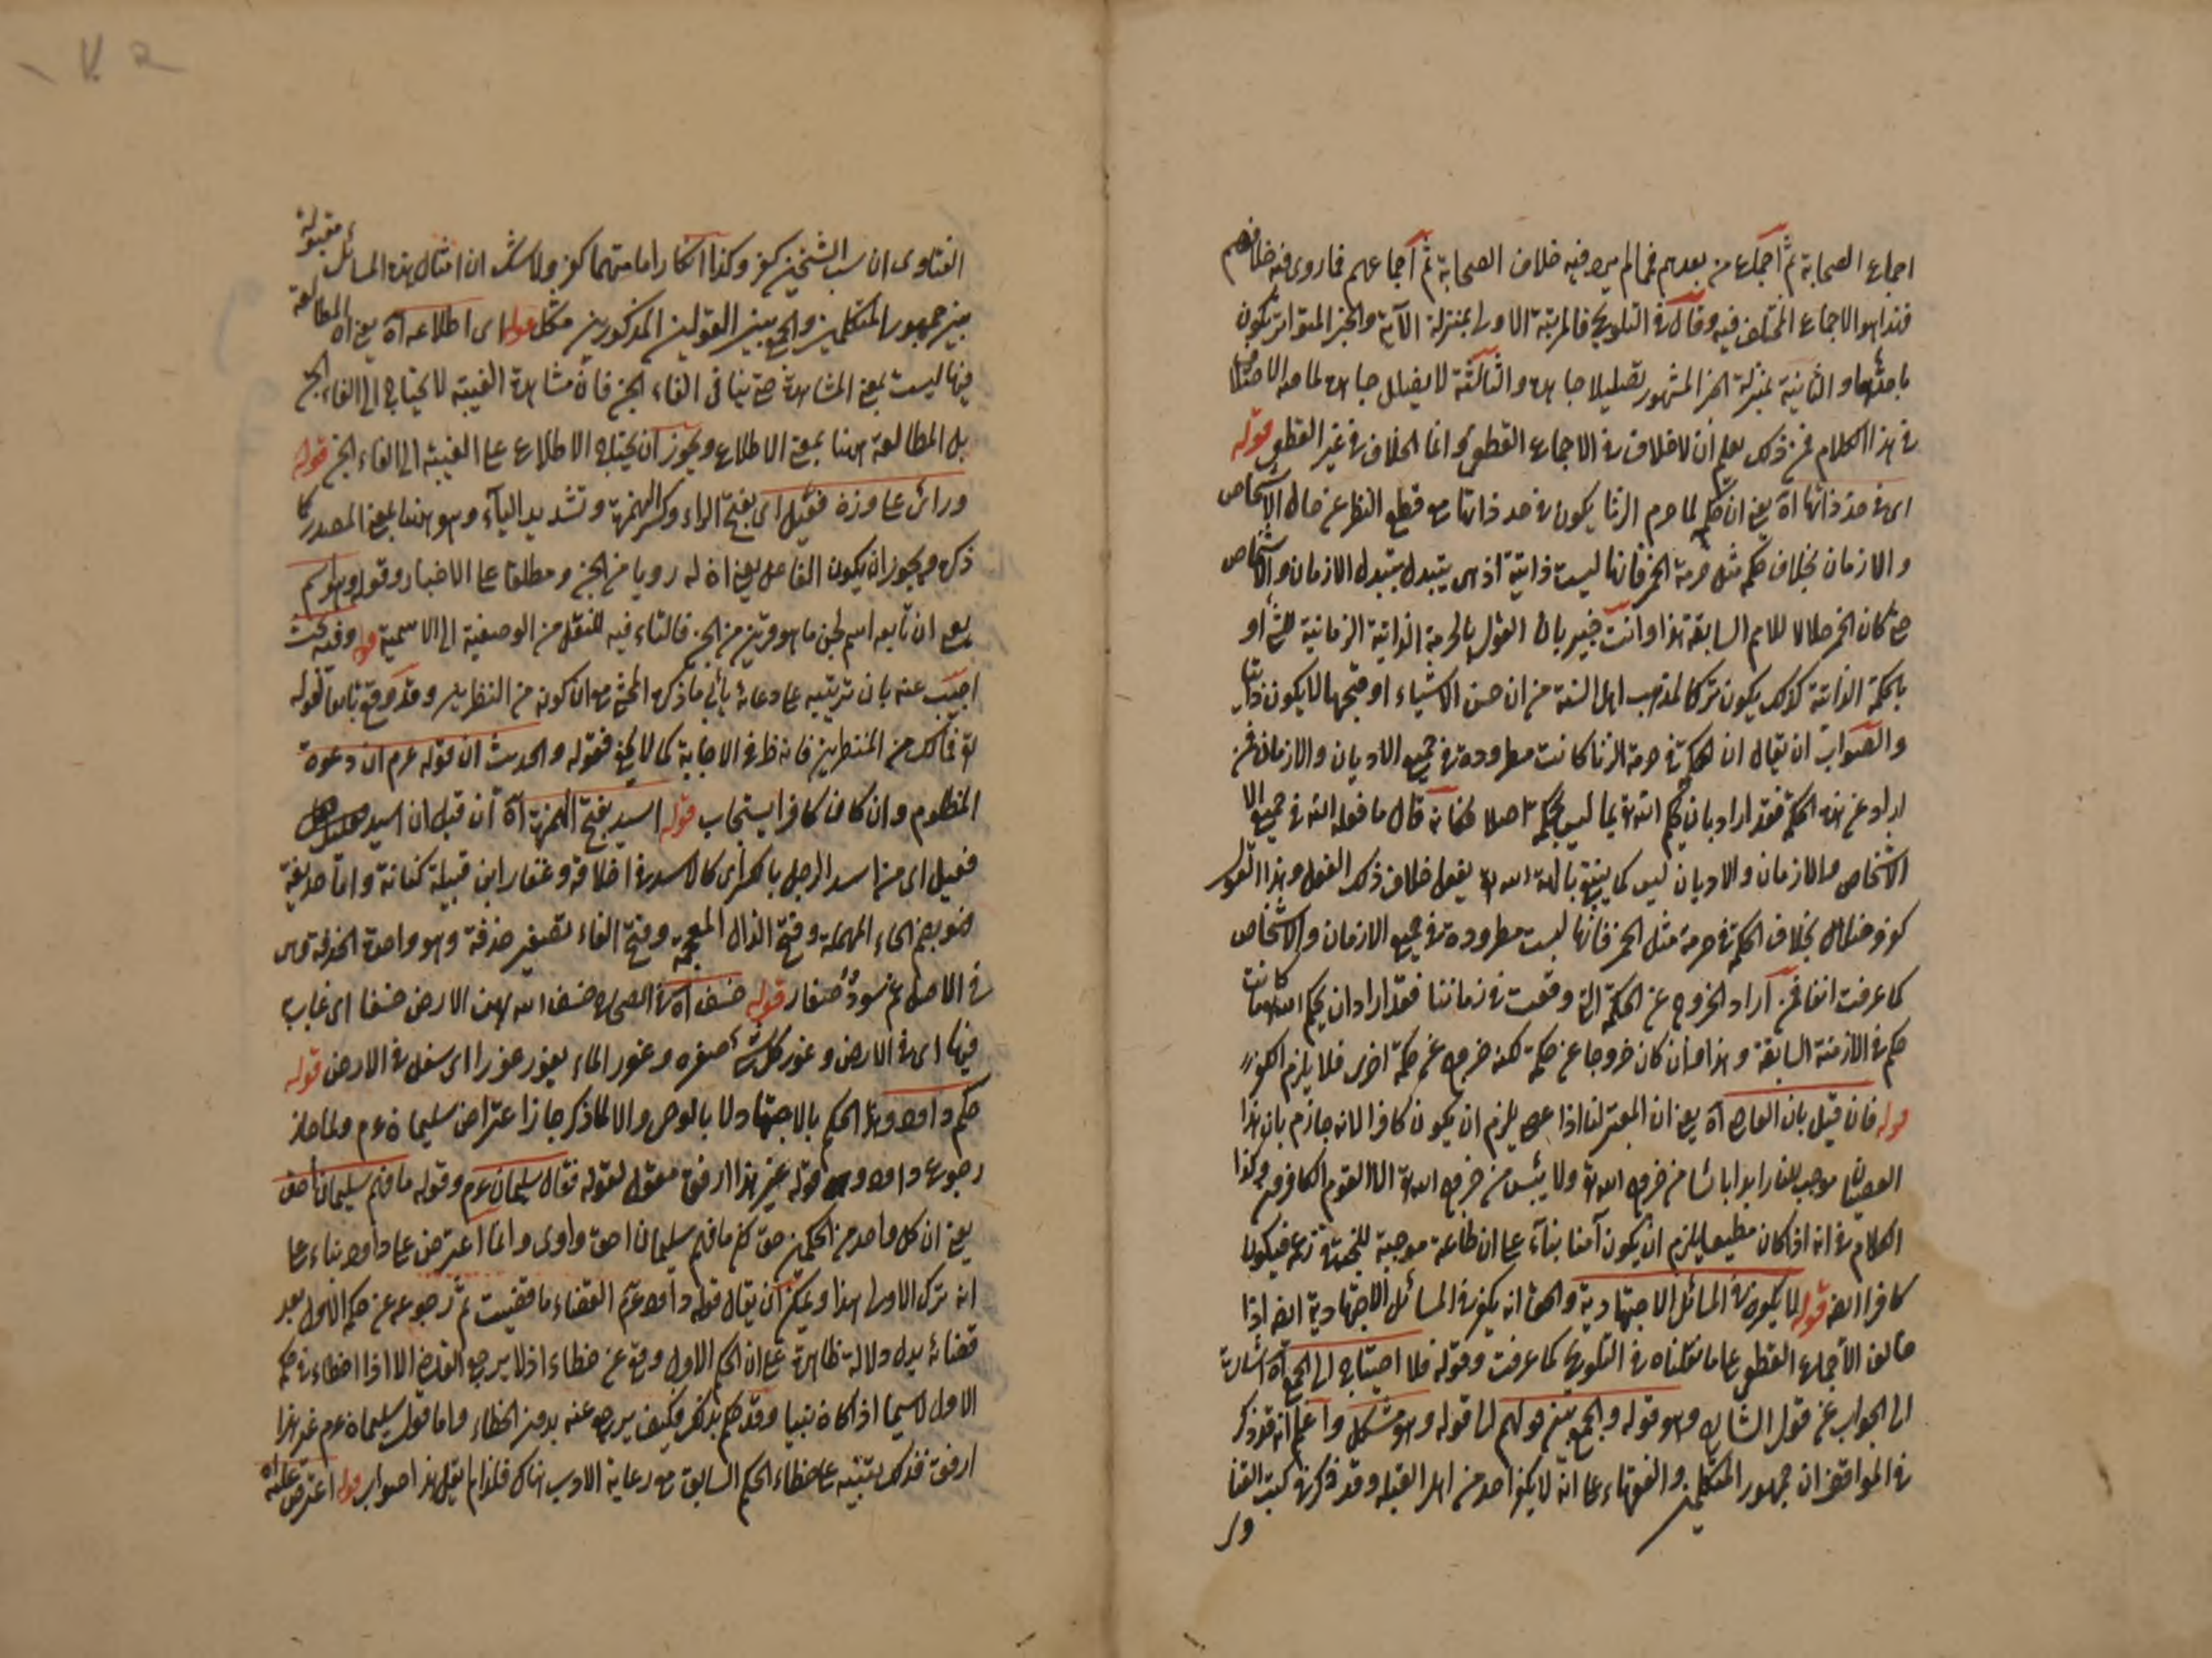 اجماع الصحابة ثم اجماع من بعدهم فيما لم يرو فيه خلاف الصحابة ثم اجماعهم فيما روى فيه خلافهم
فهذا هو الاجماع المختلف فيه وقال في التلويح فالمرتبة الاولى بمنزلة الآية والخبر المتواتر يكون
والثانية بمنزلة الخبر المشهور يضلل جاحده والثالثة لا يضلل جاحده لما فيه الاختلاف
في هذا الكلام فمن ذلك يعلم ان لا خلاف في الاجماع القطعي وانما الخلاف في غير القطعي قوله
اى في حد ذاتها آه يعنى ان حكم لما حرم الزنا يكون في حد ذاتها مع قطع النظر عن حال الاشخاص
والازمان بخلاف حكم مثل حرمة الخمر فانها ليست ذاتية اذ هى يتبدل بتبدل الازمان والاشخاص
كان الخمر حلالا للامم السابقة هذا وانت خبير بان القول بالحرمة الذاتية الزمانية او
بالحكمة الذاتية كذلك يكون تركا لمذهب اهل السنة من ان حسن الاشياء او قبحها لا يكون ذاتيا
والصواب ان يقال ان الحكمة في حرمة الزنا كانت مطرودة في جميع الاديان والازمان فمن
اراد عن هذه الحكمة فقد اراد بان يحكم الله تعالى بما ليس بحكمة اصلا فكانه قال ما فعله الله في جميع
الاشخاص والازمان والاديان ليس كما ينبغى بفعل خلاف ذلك الفعل وهذا القول
كفر وضلال بخلاف الحكمة في حرمة مثل الخمر فانها ليست مطرودة في جميع الازمان والاشخاص
كما عرفت انفا فمن اراد الخروج عن الحكمة التى وقعت في زماننا فقد اراد ان يحكم الله
حكم في الازمنة السابقة وهذا وان كان خروجا عن حكمة لكنه خروج عن حكمة اخرى فلا يلزم الكفر
قوله فان قيل بان العاصى آه يعنى ان المعتزلى اذا عصى يلزم ان يكون كافرا لانه جازم بان هذا
العصيان موجب للنار ابدا بائسا من خروج الله تعالى ولا ييئس من روح الله تعالى الا القوم الكافرون وكذا
الكلام في انه اذا كان مطيعا يلزم ان يكون آمنا بناء على ان طاعته موجبة للجنة في زعمه فيكون
كافرا ايضا قوله لما يكون في المسائل الاجتهادية والحق انه يكفر في المسائل الاجتهادية ايضا اذا
خالف الاجماع القطعى على ما نقلناه في التلويح كما عرفت وقوله فلا احتياج الى الجمع آه اشارة
الى الجواب عن قول الشارح وهو قوله والجمع بين قولهم الى قوله وهو مشكل واعلم انه قد ذكر
في المواقف ان جمهور المتكلمين والفقهاء على انه لا يكفر احد من اهل القبلة وقد ذكر في كتب الفتا
وى
الفتاوى ان سب الشيخين كفر وكذا انكار امامتهما كفر ولا شك ان امثال هذه المسائل مقبولة
بين جمهور المتكلمين والجمع بين القولين المذكورين مشكل قوله اى اطلاعه آه يعنى ان المطالعة
فيها ليست بمعنى المشاهدة حتى ينافى القاء الجن فان مشاهدة الغيبة لا يحتاج الى القاء الجن
بل المطالعة ههنا بمعنى الاطلاع ويجوز ان يحتاج الاطلاع على الغيبة الى القاء الجن قوله
ورائى على وزن فعيل اى بفتح الراء وكسر الهمزة وتشديد الياء وهو ههنا بمعنى المصدر كما
ذكر ويجوز ان يكون الفاعل يعنى ان له رويا من الجن ومطلقا على الاخبار وقوله وهو اسم
يعنى ان تابعه اسم لجن ما هو قرين من الجن فالتاء فيه للنقل من الوصفية الى الاسمية قوله وفيه بحث
اجيب عنه بان ترتيبه على دعائه يأبى ما ذكره المحشى من ان كونه من المنظرين وقد وقع تابعا لقوله
تعالى فانك من المنظرين فانه ظ في الاجابة كما لا يخفى فقوله والحديث ان قوله عم ان دعوة
المظلوم وان كان كافرا يستجاب قوله اسيد بفتح الهمزة آه ان قيل ان اسيد
فعيل اى من اسد الرجل بالكسر اى كالاسد في اخلاقه وغفار ابن قبيلة كنانة واما حذيفة
فهو بضم الحاء المهملة وفتح الذال المعجمة وفتح الفاء تصغير حذفة وهو واحدة الحذف وهى
في الاصل غنم سود صغار قوله خسف آه في الصحاح خسف الله به الارض خسفا اى غاب
فيها اى في الارض وغور كل شئ قعره وغور الماء يغور غورا اى سفل في الارض قوله
حكم داود وهذا الحكم بالاجتهاد لا بالوحى والا لما ذكر جاز اعتراض سليمان عم ولما جاز
رجوع داود وقوله غير هذا ارفق مقول لقوله فقال سليمان عم وقوله ما فهم سليمان احق
يعنى ان كل واحد من الحكمين حق لكن ما فهم سليمان احق واولى وانما اعترض على داود بناء على
انه ترك الاولى هذا ويمكن ان يقال قوله داود عم القضاء ما قضيت ثم رجوعه عن حكمه الاول بعد
قضائه يدل دلالة ظاهرة على ان الحكم الاول وقع عن خطاء اذ لا يرجع القاضى الا اذا اخطاء في حكمه
الاول لا سيما اذا كان نبيا وقد حكم بذلك فكيف يرجع عنه بدون الخطاء واما قول سليمان عم غير هذا
ارفق فذلك تنبيه على خطاء الحكم السابق مع رعاية الادب هناك فلذا لم يقل هذا صواب قوله اعترض عليه آه